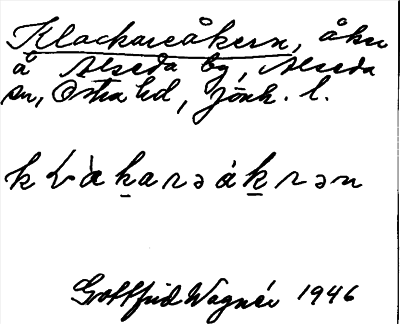 Klackareåkern, åker
å Alseda by, Alseda
sn, Östra hd, Jönk. l.
kʟàkarəákrən
Gottfrid Wagnér 1946